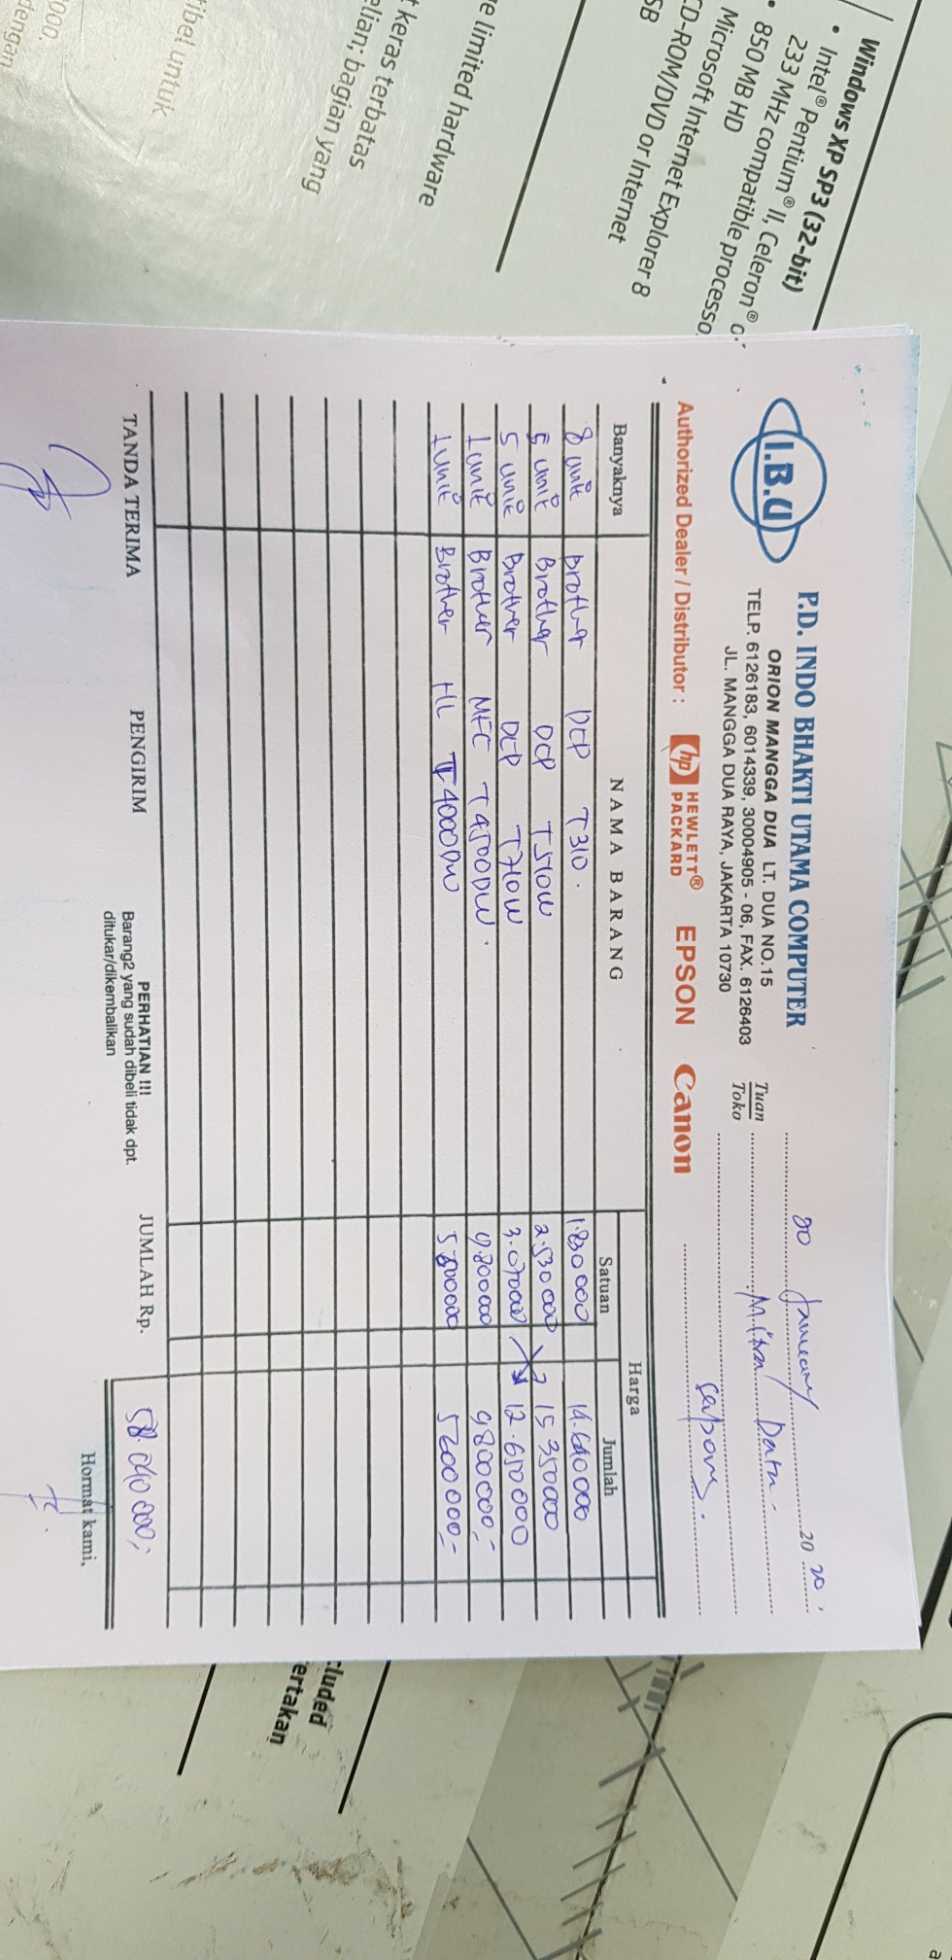 Windows XP SP3 (32-bit)
• Intel® Pentium® II, Celeron® o
233 MHz compatible processo
• 850 MB HD
Microsoft Internet Explorer 8
CD-ROM/DVD or Internet
SB
e limited hardware
t keras terbatas
elian; bagian yang
ibel untuk
000.
dengan
I.B.U
P.D. INDO BHAKTI UTAMA COMPUTER
ORION MANGGA DUA LT. DUA NO.15
TELP. 6126183, 6014339, 30004905 - 06, FAX. 6126403
JL. MANGGA DUA RAYA, JAKARTA 10730
30 January 20 20.
Tuan
Toko
Mitra Data.
Serpong.
Authorized Dealer / Distributor : hp HEWLETT® PACKARD EPSON Canon
Banyaknya NAMA BARANG Harga
Satuan Jumlah
8 unit Brother DCP T310. 1.830 000 14.640 000
5 unit Brother DCP T510W 2.530 000 15 350 000
5 unit Brother DCP T710W 3.070 000 12.650 000
1 unit Brother MFC T4500DW. 9.800 000 9800 000,-
1 unit Brother HL T4000DW 5600000 5600 000,-
TANDA TERIMA PENGIRIM
PERHATIAN !!!
Barang2 yang sudah dibeli tidak dpt.
ditukar/dikembalikan
JUMLAH Rp. 58.040 000,-
Hormat kami,
cluded
ertakan